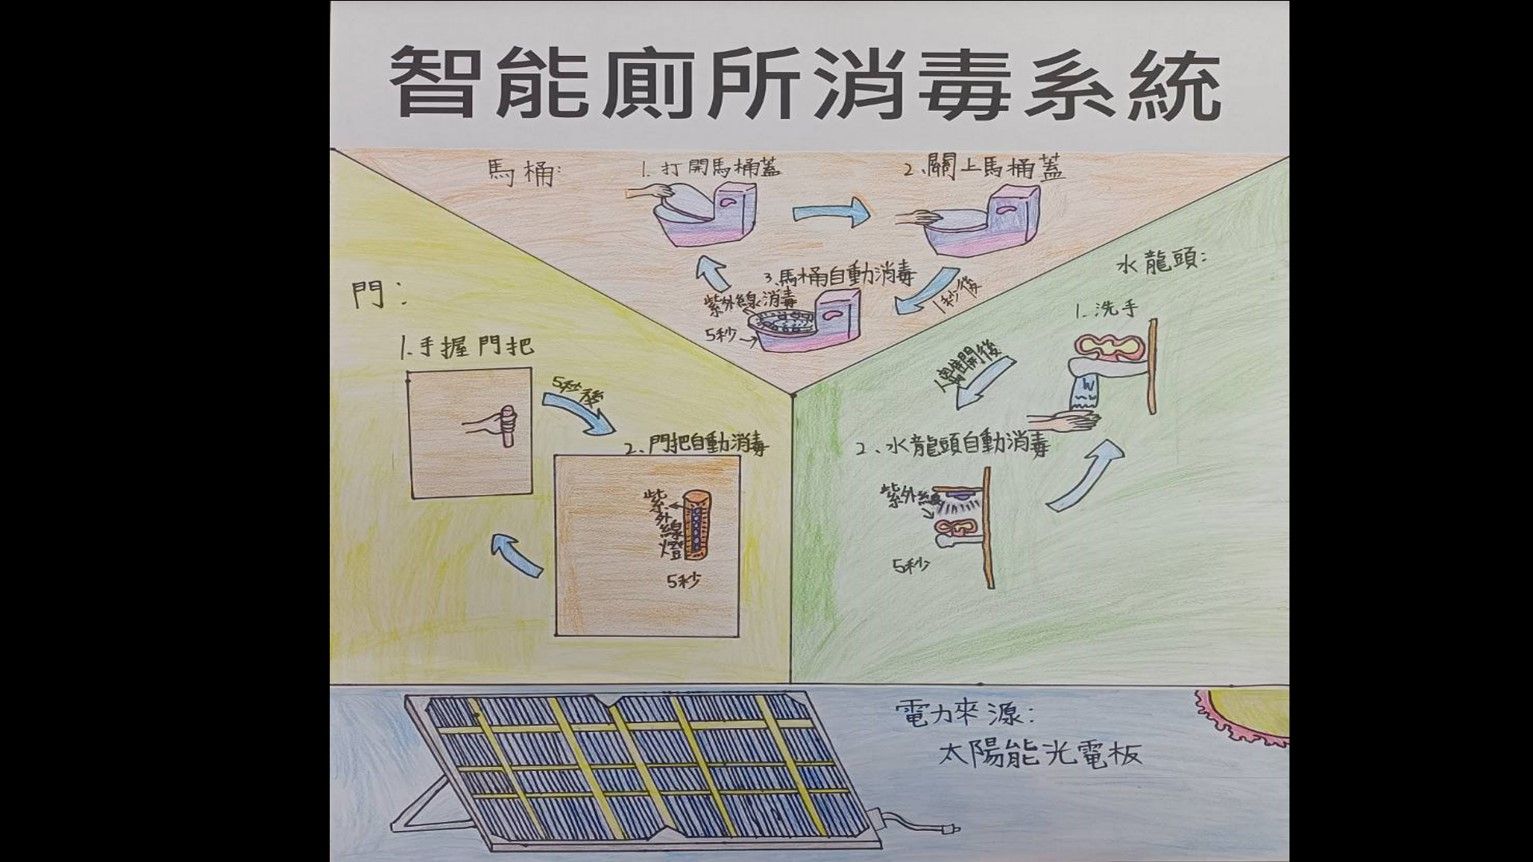 智能廁所消毒系統
馬桶:
1.打開馬桶蓋
2.關上馬桶蓋
1秒後
3.馬桶自動消毒
紫外線消毒
5秒
門:
1.手握門把
5秒後
2.門把自動消毒
紫外線燈
5秒
水龍頭:
1.洗手
離開後
2.水龍頭自動消毒
紫外線
5秒
電力來源:
太陽能光電板